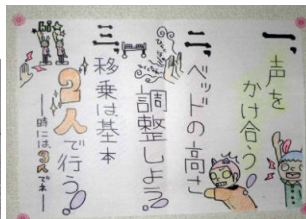 一、声を
かけ合う
二、ベッドの高さ
調整しよう
三、移乗は基本
2人で行う
―時には3人でネ―